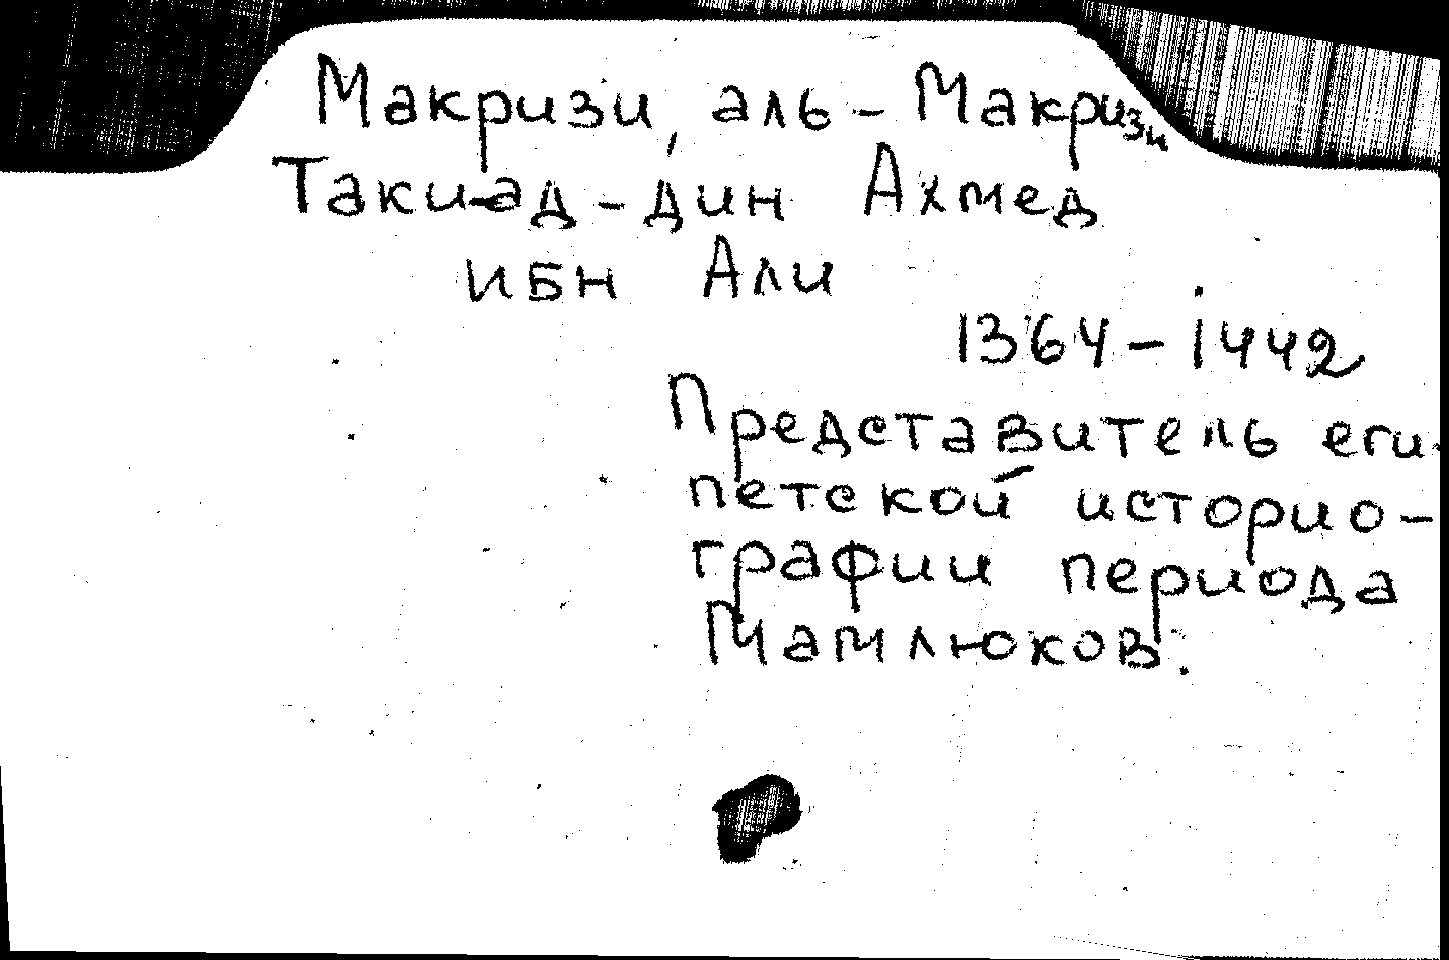 Макризи, аль-Макризи
Таки-ад-дин Ахмед
ибн Али
1364-1442
Представитель еги-
петской историо-
графии периода
Мамлюков.